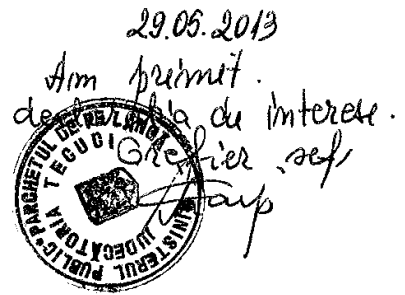 29.05.2013
Am primit.
declarația de interese.
Grefier șef,
MINISTERUL PUBLIC * PARCHETUL DE PE LÂNGĂ
JUDECĂTORIA TECUCI